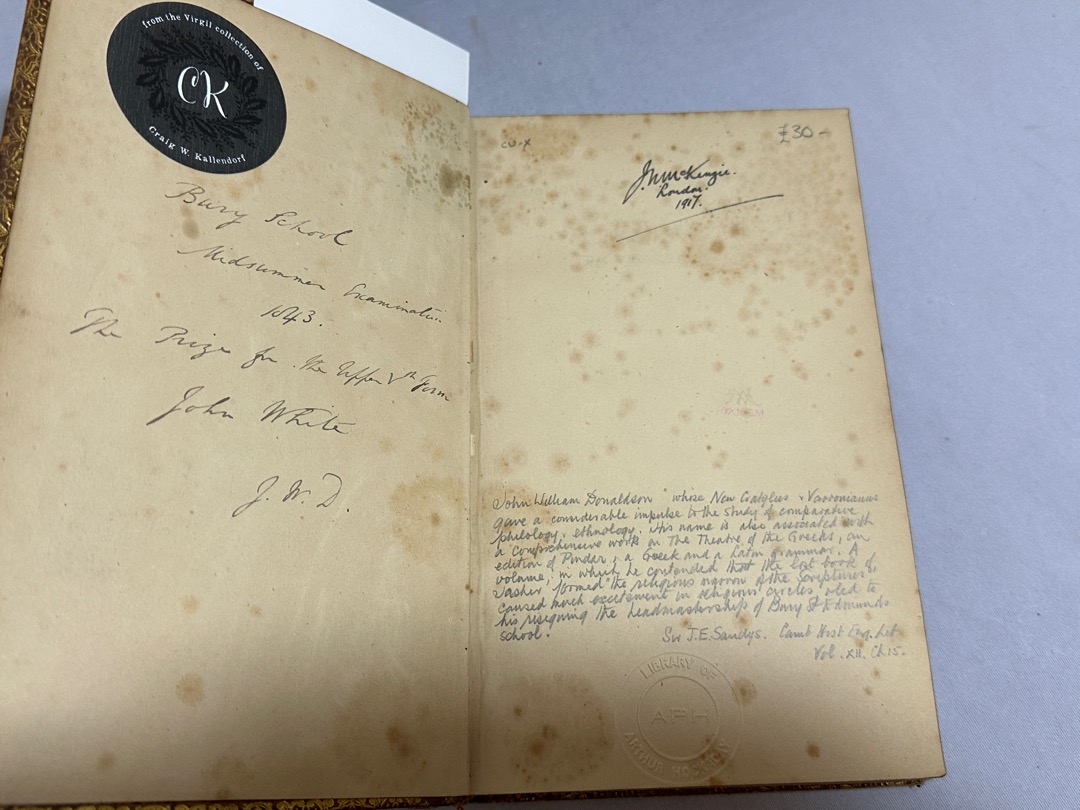 from the Virgil collection of
CK
Craig W. Kallendorf
Bury School
Midsummer Examination
1843.
The Prize for the Upper Vth Form
John White
J. W. D.
£30-
McKenzie.
London.
1917.
John William Donaldson "whose New Cratylus & Varronianus
gave a considerable impulse to the study of comparative
philology & ethnology. His name is also associated with
a comprehensive work on The Theatre of the Greeks, an
edition of Pindar, & a Greek and a Latin grammar. A
volume, in which he contended that the lost book of
Jasher formed the religious marrow of the Scriptures,
caused much excitement in religious circles & led to
his resigning the headmastership of Bury St Edmunds
school.
Sir J.E. Sandys. Camb Hist Eng. Lit
Vol. XII. Ch 15.
LIBRARY OF
APH
ARTHUR